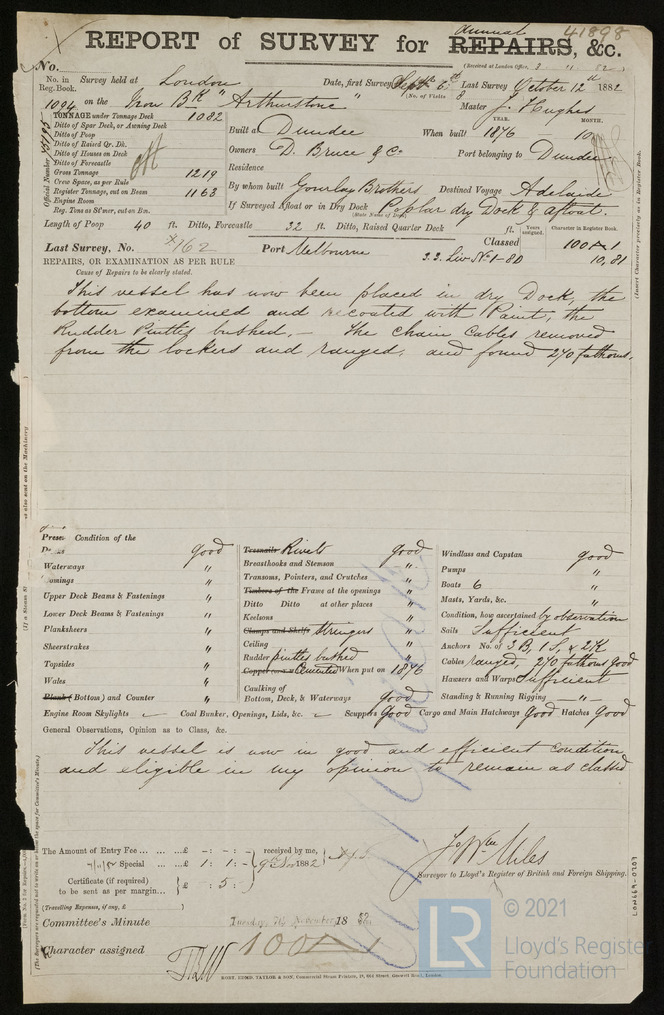 annual 41898
REPORT of SURVEY for REPAIRS, &c.
No.
(Received at London Office,
No. in Reg. Book. Survey held at London Date, first Survey Sept. 6th Last Survey October 12th 1882
(No. of Visits 8
1094 on the Iron Bk "Arthurstone" Master J. Hughes
TONNAGE under Tonnage Deck 1082
Ditto of Spar Deck, or Awning Deck
Ditto of Poop
Ditto of Raised Qr. Dk.
Ditto of Houses on Deck
Ditto of Forecastle
Gross Tonnage 1219
Crew Space, as per Rule
Register Tonnage, cut on Beam 1163
Engine Room
Reg. Tons as St'mer, cut on Bm.
Official Number
YEAR. MONTH.
Built at Dundee When built 1876 - 10
Owners D. Bruce & Co Port belonging to Dundee
Residence
By whom built Gourlay Brothers Destined Voyage Adelaide
If Surveyed Afloat or in Dry Dock Poplar dry Dock & afloat.
(State Name of Dock)
Length of Poop 40 ft. Ditto, Forecastle 32 ft. Ditto, Raised Quarter Deck ft.
Years assigned. Character in Register Book.
Last Survey, No. 162 Port Melbourne Classed 100 A 1
S.S. Liv No 1-80 10,81
REPAIRS, OR EXAMINATION AS PER RULE
Cause of Repairs to be clearly stated.
(Insert Character precisely as in Register Book.
This vessel has now been placed in dry Dock, the
bottom examined and recoated with Paint, the
Rudder Pintles bushed, - The chain Cables removed
from the lockers and ranged, and found 270 fathoms.
also sent on the Machinery
Condition of the
good
Waterways "
Comings "
Upper Deck Beams & Fastenings "
Lower Deck Beams & Fastenings "
Planksheers "
Sheerstrakes "
Topsides "
Wales "
Plank (of Bottom) and Counter "
Treenails Rivets good
Breasthooks and Stemson "
Transoms, Pointers, and Crutches "
Timbers of the Frame at the openings "
Ditto Ditto at other places "
Keelsons "
Clamps and Shelfs Stringers "
Ceiling "
Rudder pintles bushed "
Cemented When put on 1876
Caulking of
Bottom, Deck, & Waterways Good
Windlass and Capstan good
Pumps "
Boats 6 "
Masts, Yards, &c. "
Condition, how ascertained by observation
Sails Sufficient
Anchors No. of 3 B, 1 S, & 2 K
Cables ranged, 270 fathoms good
Hawsers and Warps Sufficient
Standing & Running Rigging - " -
Engine Room Skylights Coal Bunker, Openings, Lids, &c. Scuppers Good Cargo and Main Hatchways Good Hatches Good
General Observations, Opinion as to Class, &c.
This vessel is now in good and efficient condition
and eligible in my opinion to remain as classed
The Amount of Entry Fee ... ... ... £ - : - : -
Special ... ... £ 1 : 1 : -
received by me,
9th Nov 1882
Certificate (if required)
to be sent as per margin... £ - 5 : -
(Travelling Expenses, if any, £
Jo Wm Miles
Surveyor to Lloyd's Register of British and Foreign Shipping.
Committee's Minute Tuesday, 7th November, 1882
Character assigned 100 A 1
ROBT. EDMD. TAYLOR & SON, Commercial Steam Printers, 19, Old Street, Goswell Road, London.
LON669-0707
© 2021
LR
Lloyd's Register
Foundation